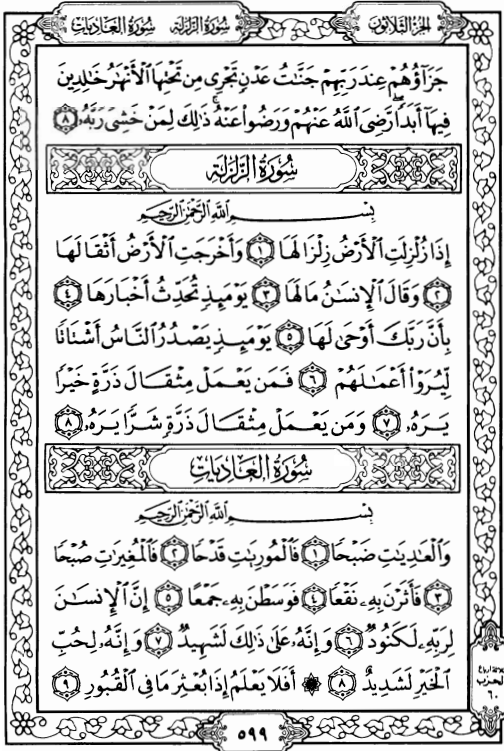 الجزء الثلاثون
سورة الزلزلة سورة العاديات
جَزَآؤُهُمْ عِندَ رَبِّهِمْ جَنَّٰتُ عَدْنٍ تَجْرِى مِن تَحْتِهَا ٱلْأَنْهَٰرُ خَٰلِدِينَ
فِيهَآ أَبَدًاۖ رَّضِىَ ٱللَّهُ عَنْهُمْ وَرَضُوا۟ عَنْهُۚ ذَٰلِكَ لِمَنْ خَشِىَ رَبَّهُۥ ٨
سُورَةُ الزَّلْزَلَةِ
بِسْمِ ٱللَّهِ ٱلرَّحْمَٰنِ ٱلرَّحِيمِ
إِذَا زُلْزِلَتِ ٱلْأَرْضُ زِلْزَالَهَا ١ وَأَخْرَجَتِ ٱلْأَرْضُ أَثْقَالَهَا
٢ وَقَالَ ٱلْإِنسَٰنُ مَا لَهَا ٣ يَوْمَئِذٍ تُحَدِّثُ أَخْبَارَهَا ٤
بِأَنَّ رَبَّكَ أَوْحَىٰ لَهَا ٥ يَوْمَئِذٍ يَصْدُرُ ٱلنَّاسُ أَشْتَاتًا
لِّيُرَوْا۟ أَعْمَٰلَهُمْ ٦ فَمَن يَعْمَلْ مِثْقَالَ ذَرَّةٍ خَيْرًا
يَرَهُۥ ٧ وَمَن يَعْمَلْ مِثْقَالَ ذَرَّةٍ شَرًّا يَرَهُۥ ٨
سُورَةُ العَادِيَاتِ
بِسْمِ ٱللَّهِ ٱلرَّحْمَٰنِ ٱلرَّحِيمِ
وَٱلْعَٰدِيَٰتِ ضَبْحًا ١ فَٱلْمُورِيَٰتِ قَدْحًا ٢ فَٱلْمُغِيرَٰتِ صُبْحًا
٣ فَأَثَرْنَ بِهِۦ نَقْعًا ٤ فَوَسَطْنَ بِهِۦ جَمْعًا ٥ إِنَّ ٱلْإِنسَٰنَ
لِرَبِّهِۦ لَكَنُودٌ ٦ وَإِنَّهُۥ عَلَىٰ ذَٰلِكَ لَشَهِيدٌ ٧ وَإِنَّهُۥ لِحُبِّ
ٱلْخَيْرِ لَشَدِيدٌ ٨ ۞ أَفَلَا يَعْلَمُ إِذَا بُعْثِرَ مَا فِى ٱلْقُبُورِ ٩
الحزب
٦٠
٥٩٩